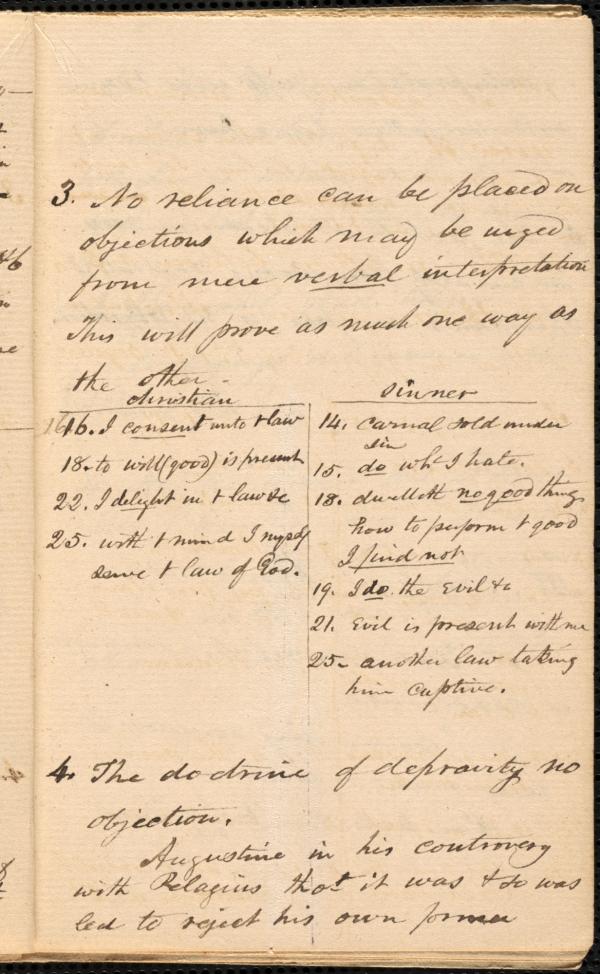 3. No reliance can be placed on
objections which may be urged
from mere verbal interpretation
This will prove as much one way as
the other.
christian
16. I consent unto t law
18. to will (good) is present
22. I delight in t law &c
25. with t mind I myself
serve t law of God.
sinner
14. carnal sold under
sin
15. do wht I hate.
18. dwelleth no good thing
how to perform t good
I find not
19. I do the evil &c
21. Evil is present with me
25. another law taking
him captive.
4. The doctrine of depravity no
objection.
Augustine in his controversy
with Pelagius thot it was & so was
led to reject his own former